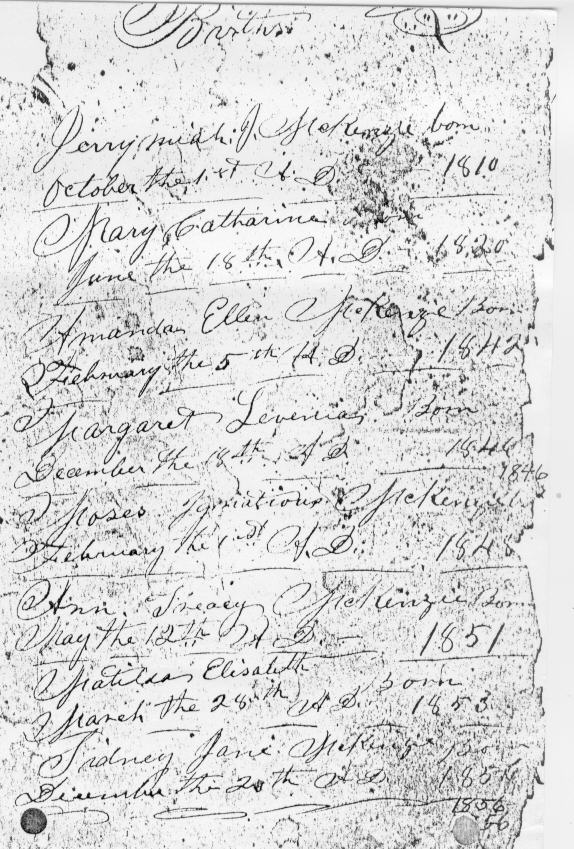 Births
Jerrymiah J. McKenzie born
October the 1st A D 1810
Mary Catharine
June the 18th A. D. 1820
Amanda Ellen McKenzie Born
February the 5th A. D. 1842
Margaret Levenia Born
December the 18th A D
1846
Moses Ignatious McKenzie
February the A. D.
Ann Treacy McKenzie Born
May the 12th A D 1851
Matilda Elisabeth Born
March the 28th A D. 1853
Sidney Jane McKenzie
December the 20th A D
1856
56